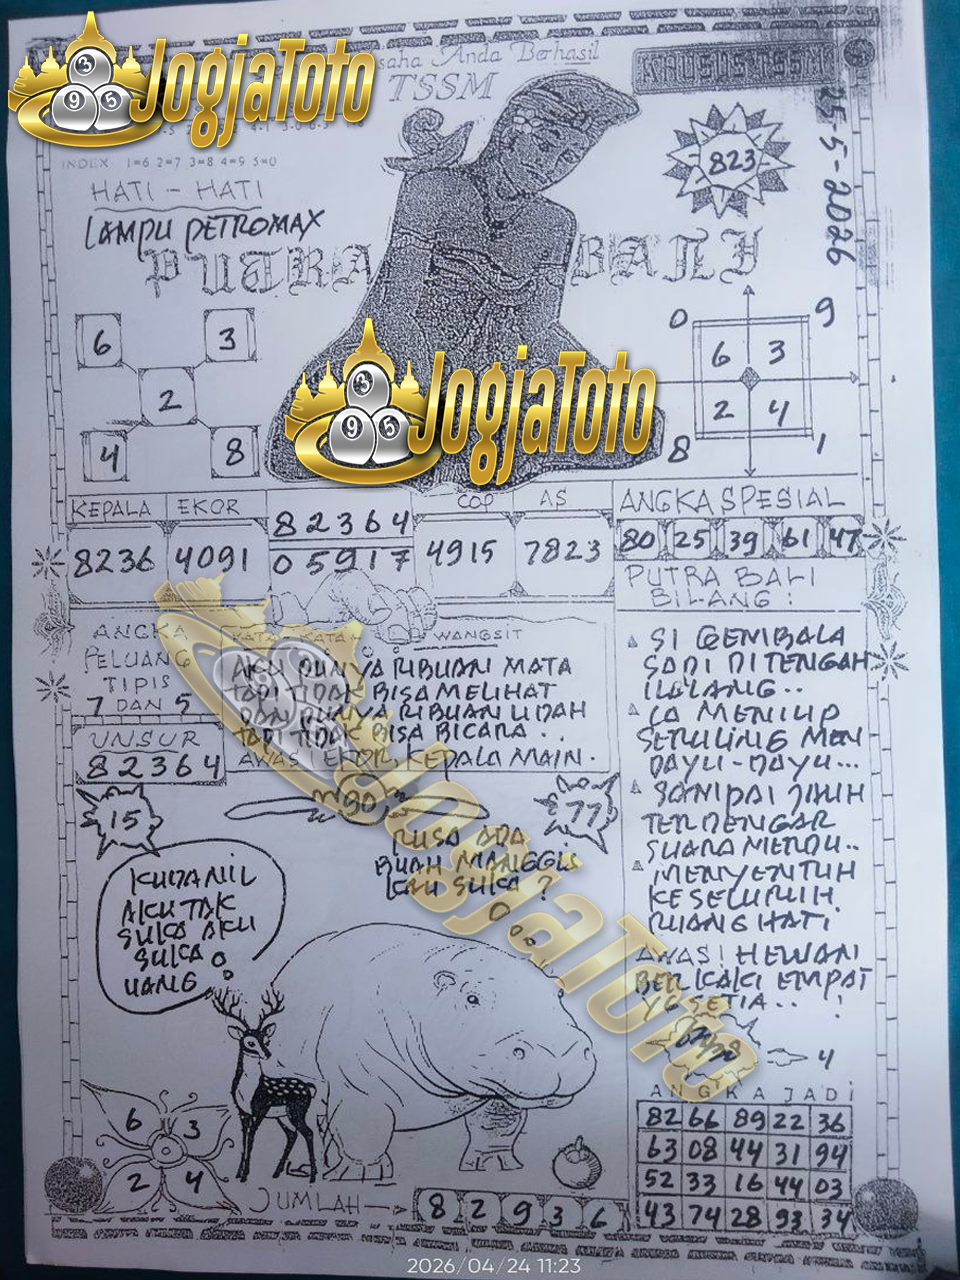 JogjaToto
saha Anda Berhasil
TSSM
KHUSUS TSSM
25-5-2026
INDEX 1=6 2=7 3=8 4=9 5=0
HATI - HATI
LAMPU PETROMAX
823
PUTRA BALI
6 3
2
4 8
0 9
6 3
2 4
8 1
JogjaToto
KEPALA EKOR
8236 4091
82364
05917
COP AS
4915 7823
ANGKA SPESIAL
80 25 39 61 47
PUTRA BALI
BILANG :
SI GEMBALA
SAPI DITENGAH
ILALANG..
IA MENIUP
SERULING MEN
DAYU-DAYU...
SAMPAI JAUH
TERDENGAR
SUARA MERDU..
MENYENTUH
KESELURUH
RUANG HATI.
AWAS! HEWAN
BERKAKI EMPAT
YG SETIA.. !
4
ANGKA
PELUANG
TIPIS
7 DAN 5
UNSUR
82364
KATA KATA WANGSIT
AKU PUNYA RIBUAN MATA
TAPI TIDAK BISA MELIHAT
DAN PUNYA RIBUAN LIDAH
TAPI TIDAK BISA BICARA..
AWAS EKOR, KEPALA MAIN.
15
90
77
RUSA ADA
BUAH MANGGIS
KAU SUKA ?
KUDANIL
AKU TAK
SUKA AKU
SUKA
UANG
JogjaToto
6 3
2 4
JUMLAH
8 2 9 3 6
ANGKA JADI
82 66 89 22 36
63 08 44 31 94
52 33 16 44 03
43 74 28 93 34
2026/04/24 11:23